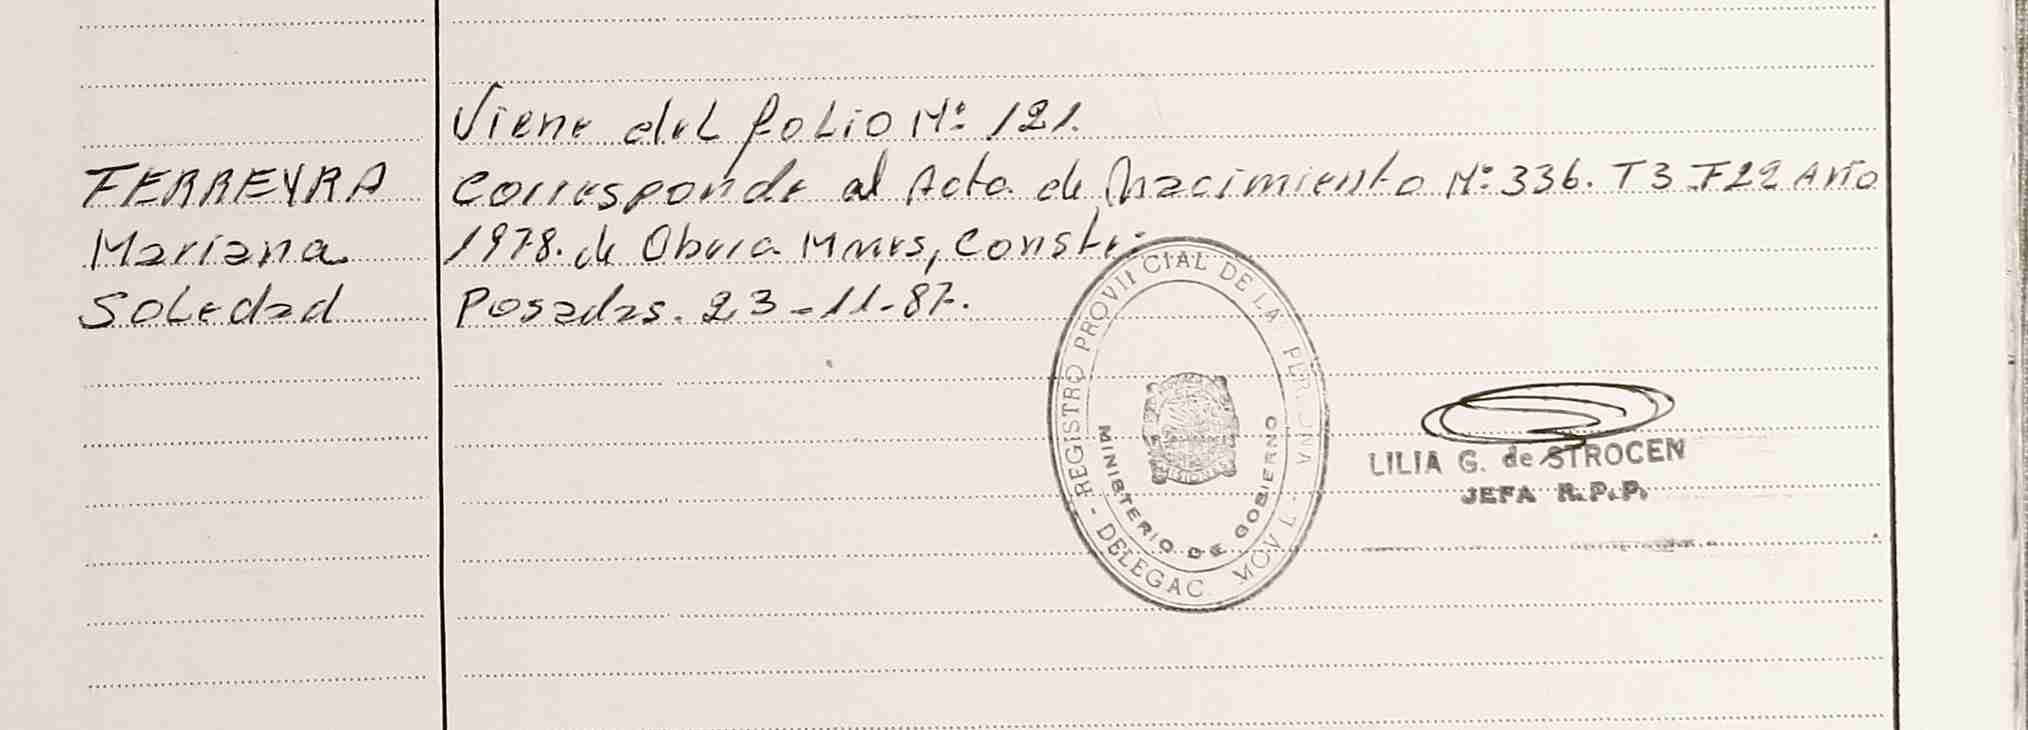 Viene del folio Nº 121.
FERREYRA
Mariana
Soledad
Corresponde al Acta de Nacimiento Nº 336. T3 F22 Año
1978. de Obera Mnes, Const:
Posadas. 23-11-87.
REGISTRO PROVINCIAL DE LA PERSONA
- DELEGAC. MOVIL -
MINISTERIO DE GOBIERNO
LILIA G. de STROCEN
JEFA R.P.P.